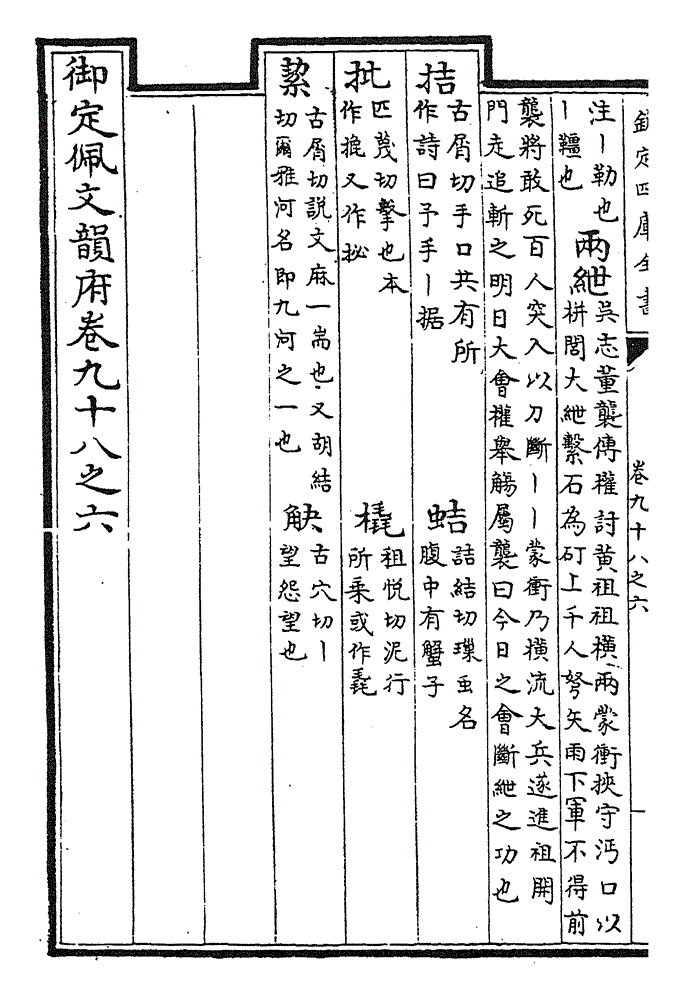 欽定四庫全書 卷九十八之六
注丨勒也
丨韁也
兩紲
吳志董襲傳權討黃祖祖橫兩蒙衝挾守沔口以
栟閭大紲繫石為矴上千人弩矢雨下軍不得前
襲將敢死百人突入以刀斷丨丨蒙衝乃橫流大兵遂進祖開
門走追斬之明日大會權舉觴屬襲曰今日之會斷紲之功也
拮
古屑切手口共有所
作詩曰予手丨据
蛣
詰結切璅虫名
腹中有蟹子
批
匹蔑切擊也本
作又作㧙
橇
祖悅切泥行
所乘或作毳
絜
古屑切說文麻一耑也又胡結
切爾雅河名即九河之一也
觖
古穴切丨
望怨望也
御定佩文韻府卷九十八之六